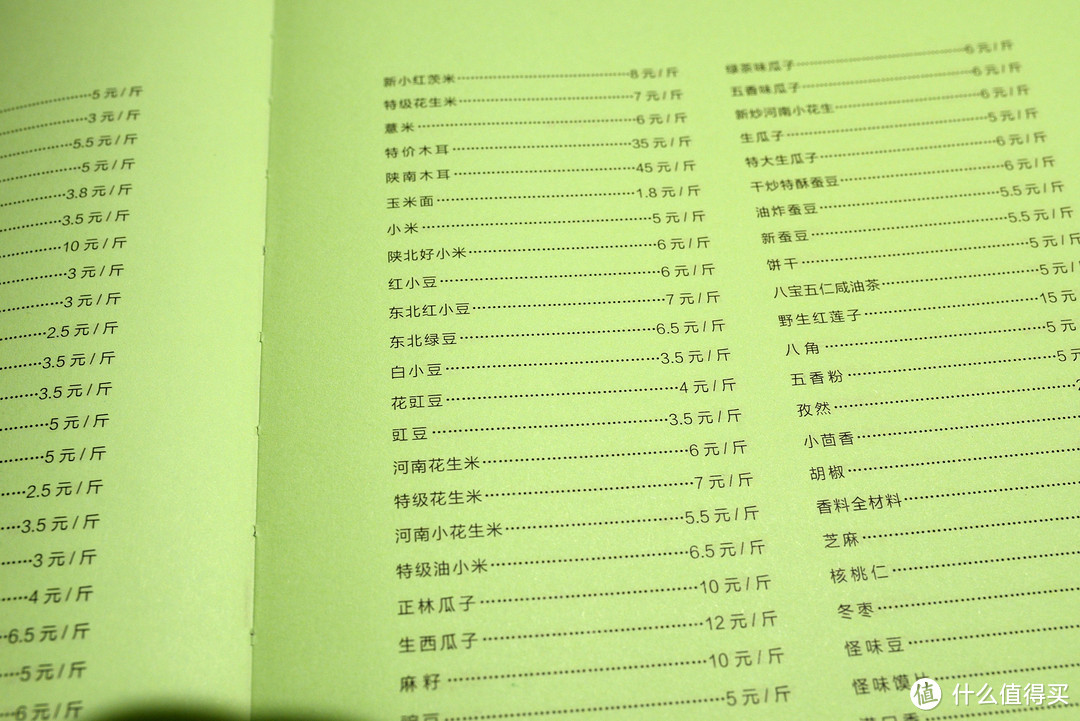 5 元 / 斤
3 元 / 斤
5.5 元 / 斤
5 元 / 斤
3.8 元 / 斤
3.5 元 / 斤
10 元 / 斤
3 元 / 斤
3 元 / 斤
2.5 元 / 斤
3.5 元 / 斤
3.5 元 / 斤
5 元 / 斤
5 元 / 斤
2.5 元 / 斤
3.5 元 / 斤
3 元 / 斤
4 元 / 斤
6.5 元 / 斤
5 元 / 斤
6 元 / 斤
新小红茨米 8 元 / 斤
特级花生米 7 元 / 斤
薏米 6 元 / 斤
特价木耳 35 元 / 斤
陕南木耳 45 元 / 斤
玉米面 1.8 元 / 斤
小米 5 元 / 斤
陕北好小米 6 元 / 斤
红小豆 6 元 / 斤
东北红小豆 7 元 / 斤
东北绿豆 6.5 元 / 斤
白小豆 3.5 元 / 斤
花豇豆 4 元 / 斤
豇豆 3.5 元 / 斤
河南花生米 6 元 / 斤
特级花生米 7 元 / 斤
河南小花生米 5.5 元 / 斤
特级油小米 6.5 元 / 斤
正林瓜子 10 元 / 斤
生西瓜子 12 元 / 斤
麻籽 10 元 / 斤
豌豆 5 元 / 斤
绿茶味瓜子 6 元 / 斤
五香味瓜子 6 元 / 斤
新炒河南小花生 6 元 / 斤
生瓜子 5 元 / 斤
特大生瓜子 6 元 / 斤
干炒特酥蚕豆 6 元 / 斤
油炸蚕豆 5.5 元 / 斤
新蚕豆 5.5 元 / 斤
饼干 5 元 / 斤
八宝五仁咸油茶 5 元 /
野生红莲子 15 元
八角 5 元
五香粉 5 元
孜然
小茴香
胡椒
香料全材料
芝麻
核桃仁
冬枣
怪味豆
怪味馍片
值 什么值得买